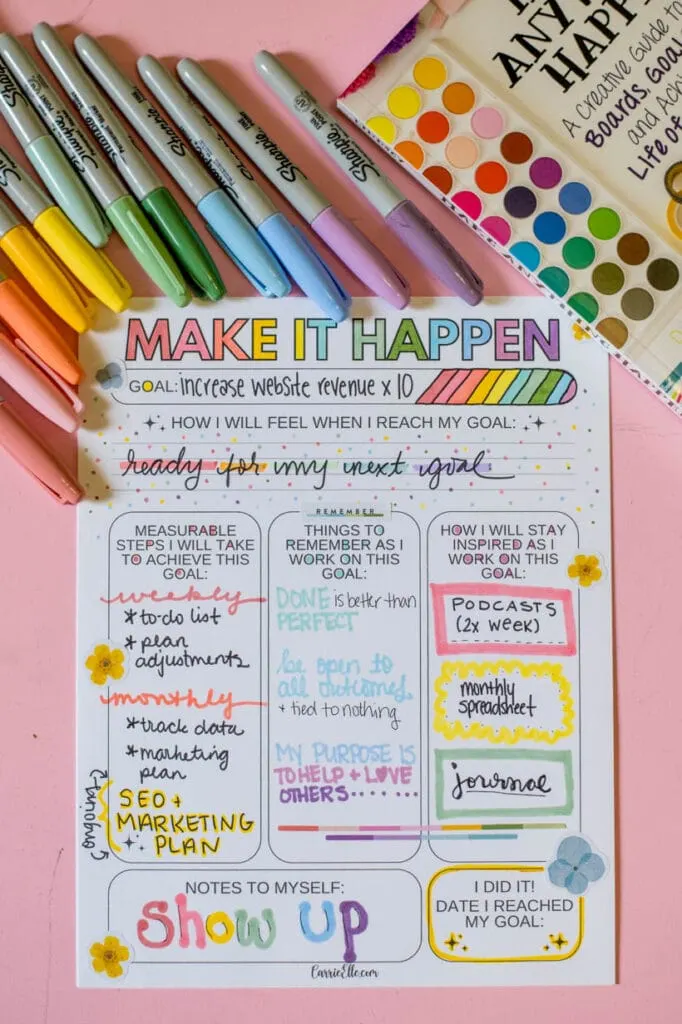 Sharpie
Sharpie
ANY
HAPP
A Creative Guide to
Boards, Goal
and Achi
Life of
MAKE IT HAPPEN
GOAL: increase website revenue x 10
HOW I WILL FEEL WHEN I REACH MY GOAL:
ready for my next goal
REMEMBER
MEASURABLE
STEPS I WILL TAKE
TO ACHIEVE THIS
GOAL:
weekly
*to-do list
*plan
adjustments
monthly
*track data
*marketing
plan
SEO +
MARKETING
PLAN
THINGS TO
REMEMBER AS I
WORK ON THIS
GOAL:
DONE is better than
PERFECT
be open to
all outcomes
+ tied to nothing
MY PURPOSE IS
TO HELP + LOVE
OTHERS......
HOW I WILL STAY
INSPIRED AS I
WORK ON THIS
GOAL:
PODCASTS
(2x WEEK)
monthly
spreadsheet
journal
NOTES TO MYSELF:
Show UP
I DID IT!
DATE I REACHED
MY GOAL:
CarrieElle.com